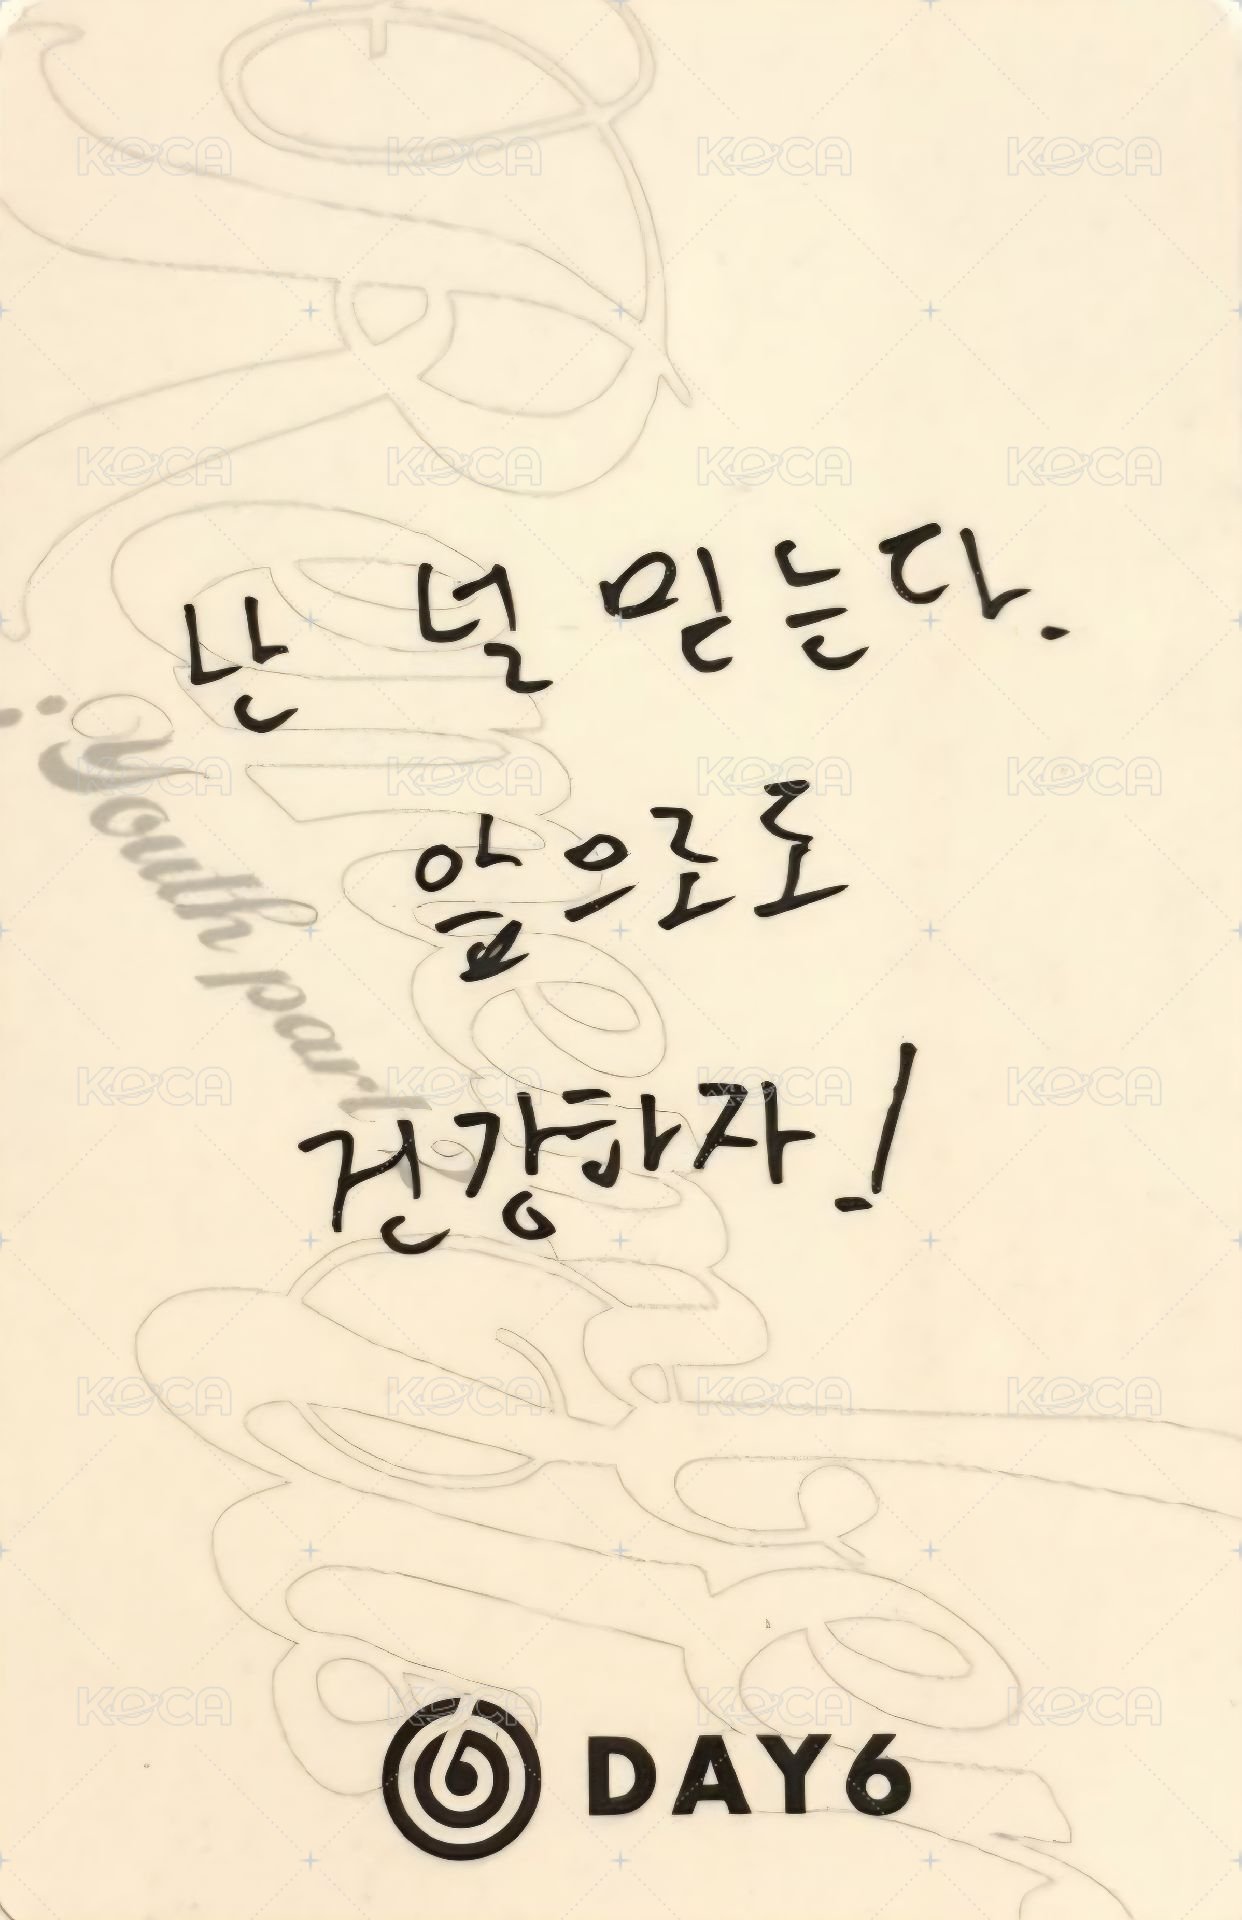 난 널 믿는다.
앞으로도
건강하자!
Youth part
DAY6
KOCA KOCA KOCA KOCA
KOCA KOCA KOCA KOCA
KOCA KOCA KOCA KOCA
KOCA KOCA KOCA KOCA
KOCA KOCA KOCA KOCA
KOCA KOCA KOCA KOCA